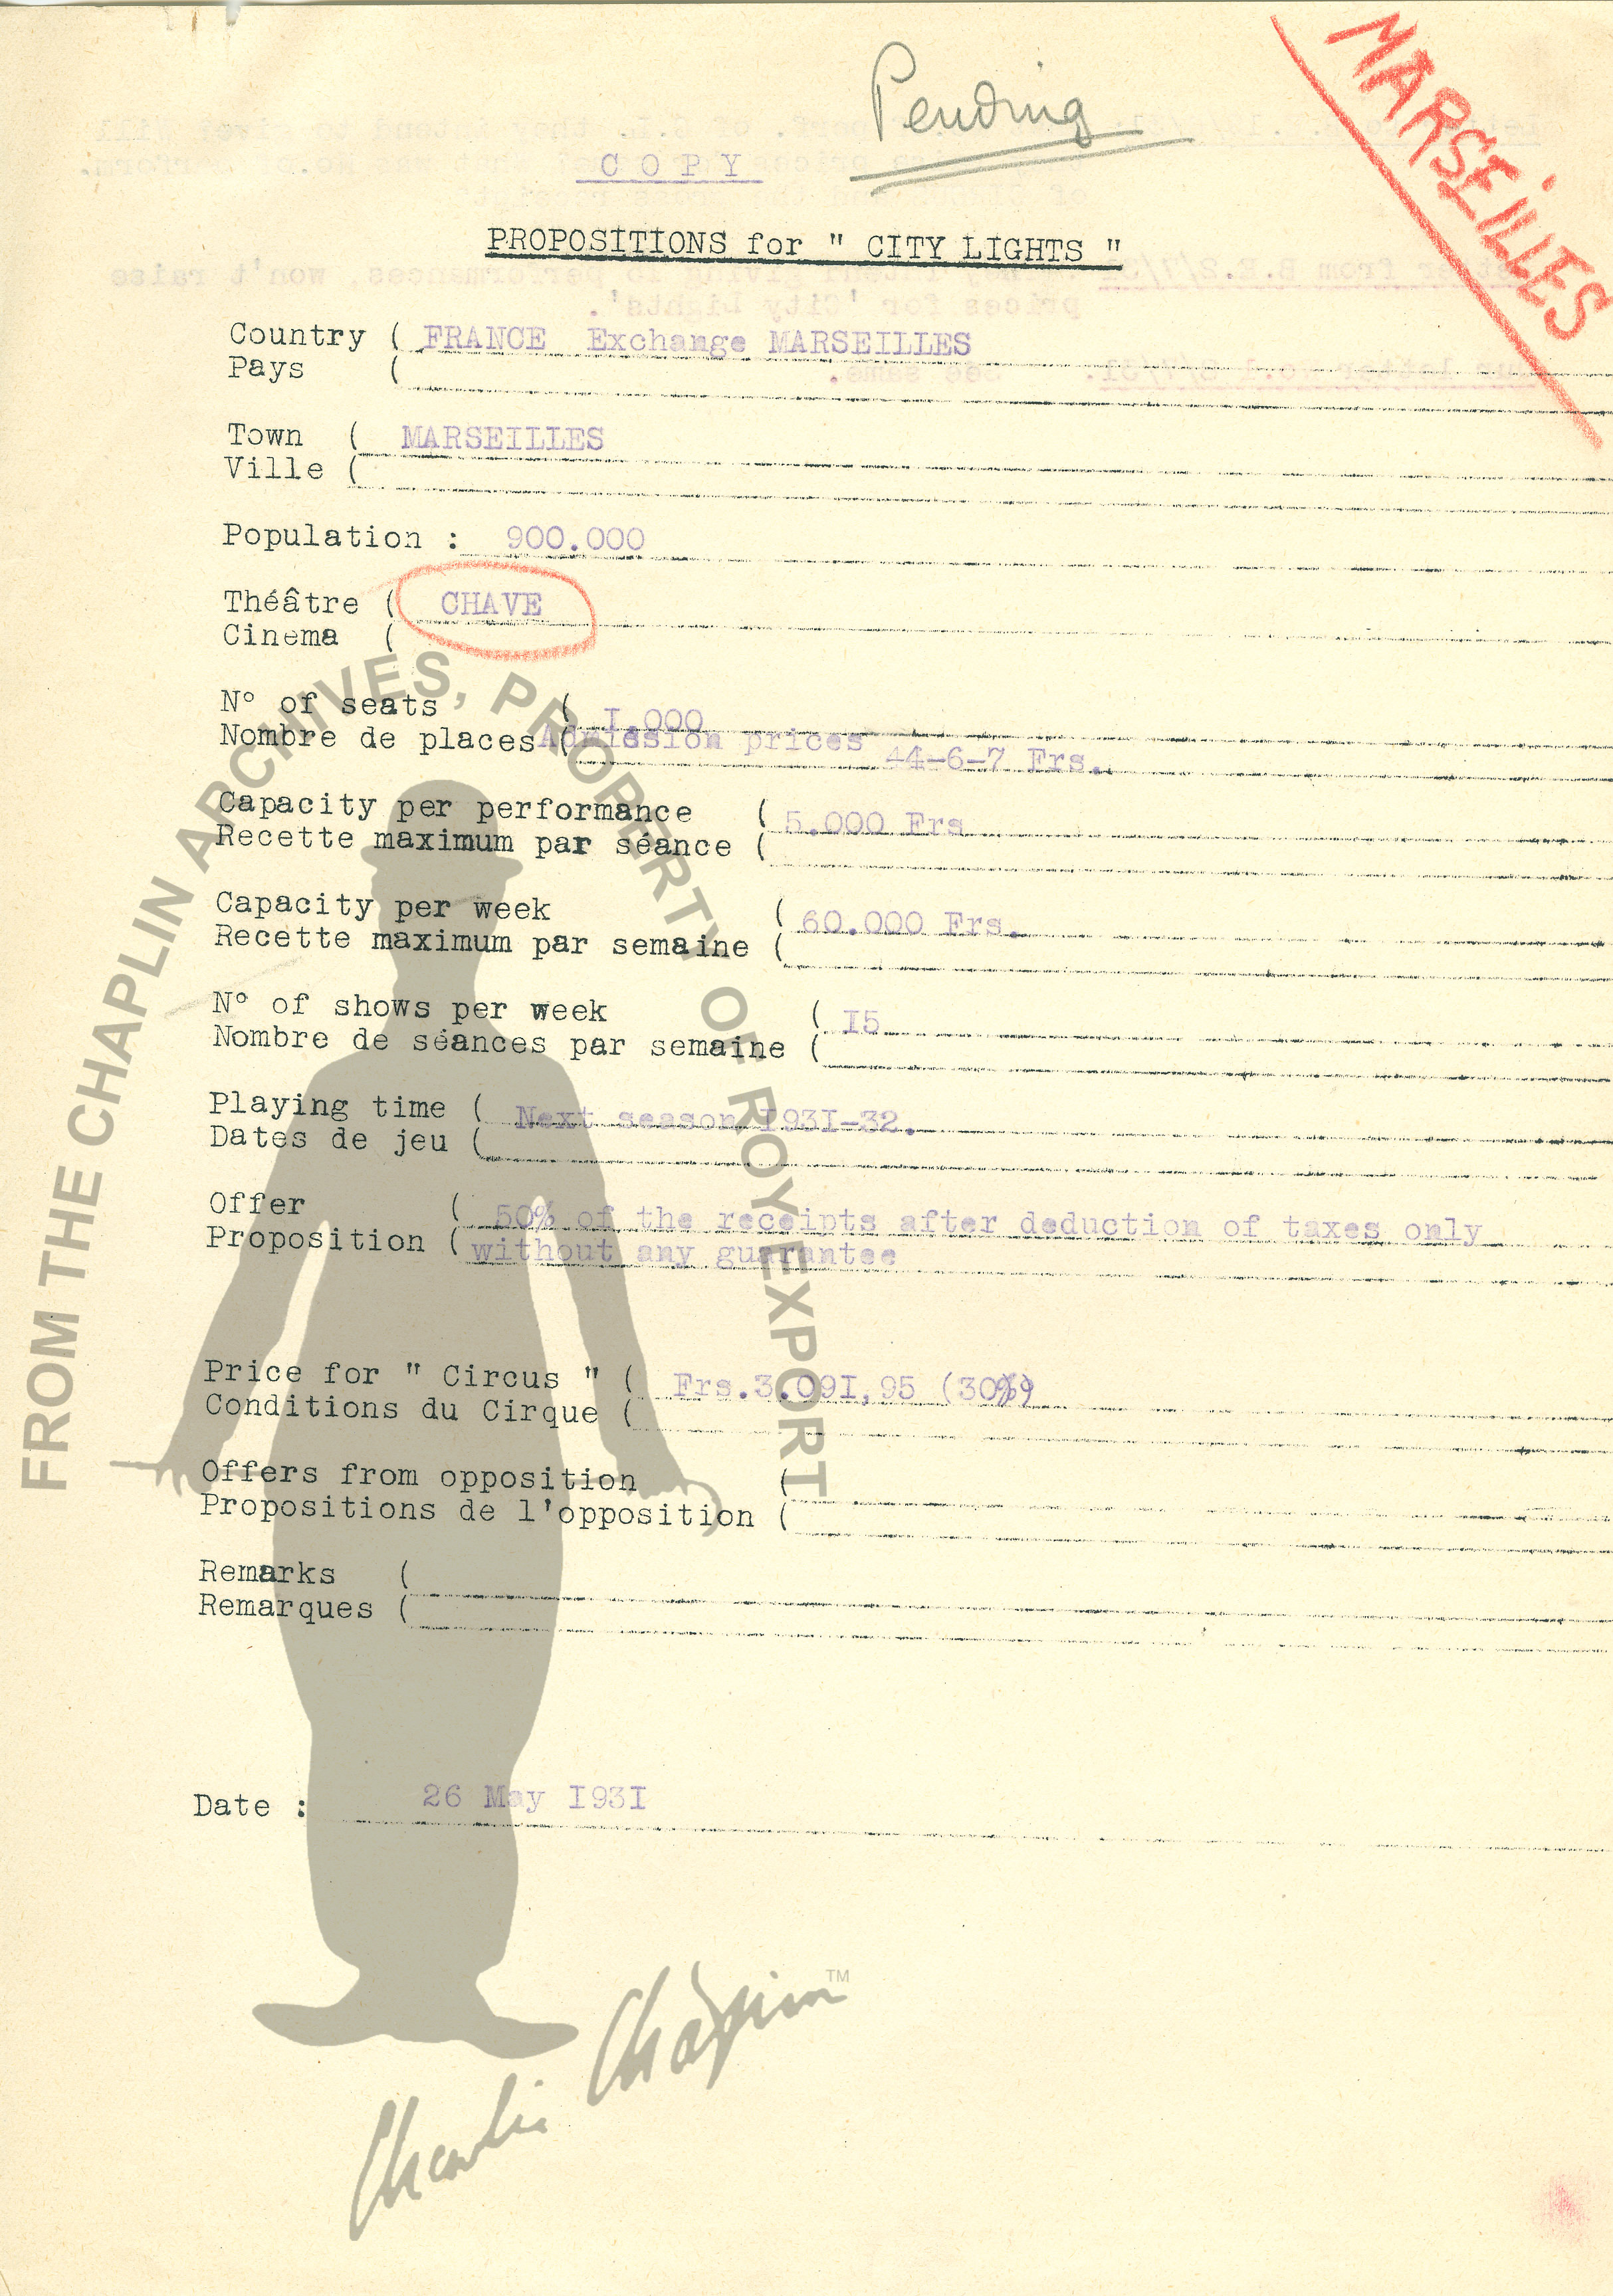 Pending
MARSEILLES
COPY
PROPOSITIONS for " CITY LIGHTS "
Country ( FRANCE Exchange MARSEILLES
Pays (
Town ( MARSEILLES
Ville (
Population : 900.000
Théâtre ( CHAVE
Cinema (
N° of seats ( I.000
Nombre de places ( Admission prices
44-6-7 Frs.
Capacity per performance ( 5.000 Frs
Recette maximum par séance (
Capacity per week ( 60.000 Frs.
Recette maximum par semaine (
N° of shows per week ( I5
Nombre de séances par semaine (
Playing time ( Next season I93I-32.
Dates de jeu (
Offer ( 50% of the receipts after deduction of taxes only
Proposition ( without any guarantee
Price for " Circus " ( Frs.3.09I,95 (30%)
Conditions du Cirque (
Offers from opposition (
Propositions de l'opposition (
Remarks (
Remarques (
Date : 26 May I93I
FROM THE CHAPLIN ARCHIVES, PROPERTY OF ROY EXPORT
Charlie Chaplin TM